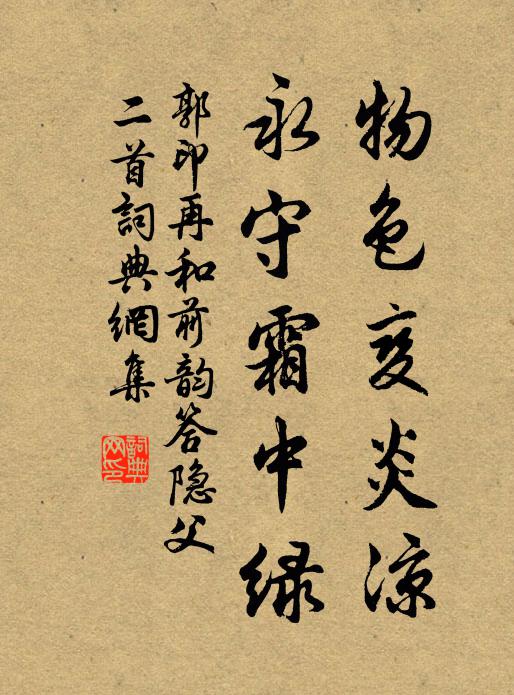 物色变炎凉
永守霜中绿
郭印再和前韵答隐父
二首詞典網集
詞典
网印